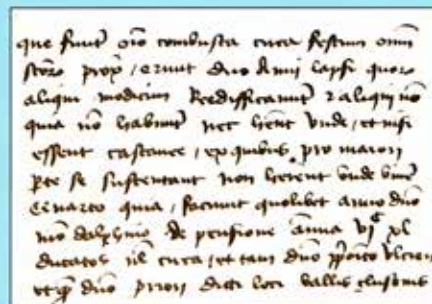 que fuint oīo combusta circa festum omī
scōrō prox̄, erunt duo Anni lapsi quorō
aliqui modicum Reedifficarunt et aliqui nō
quia nō habunt nec hēnt unde, et nisi
essent castanee, ex quibus pro maiori
pte se sustentant non herent unde
quia, faciunt quolibet anno dno
nrō dalphino de pensione annua VI^c xl
ducatos vl circa, et tam dno
et dno priori dicti loci vallis clusonis